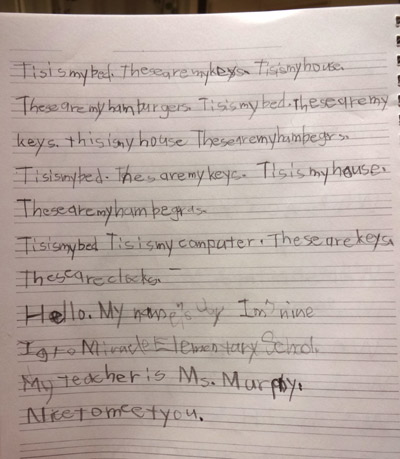 Tisismybed. Thesearemykeys. Tisismyhouse.
Thesearemyhamburgers. Tisismybed. thesearemy
keys. thisismyhouse Thesearemyhambegrs.
Tisismybed. Thesaremykeys. Tisismyhouse.
Thesearemyhambegras.
Tisismybed Tisismycomputer. Thesearekeys.
Theseareclocks.
Hello. My name's Im nine
I go to Miracle Elementary Schol.
My teacher is Ms. Murphy.
Nicetomeetyou.